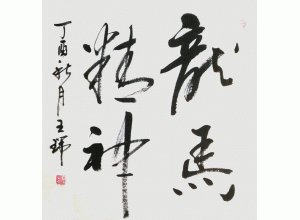 龍馬
精神
丁酉秋月王瑋